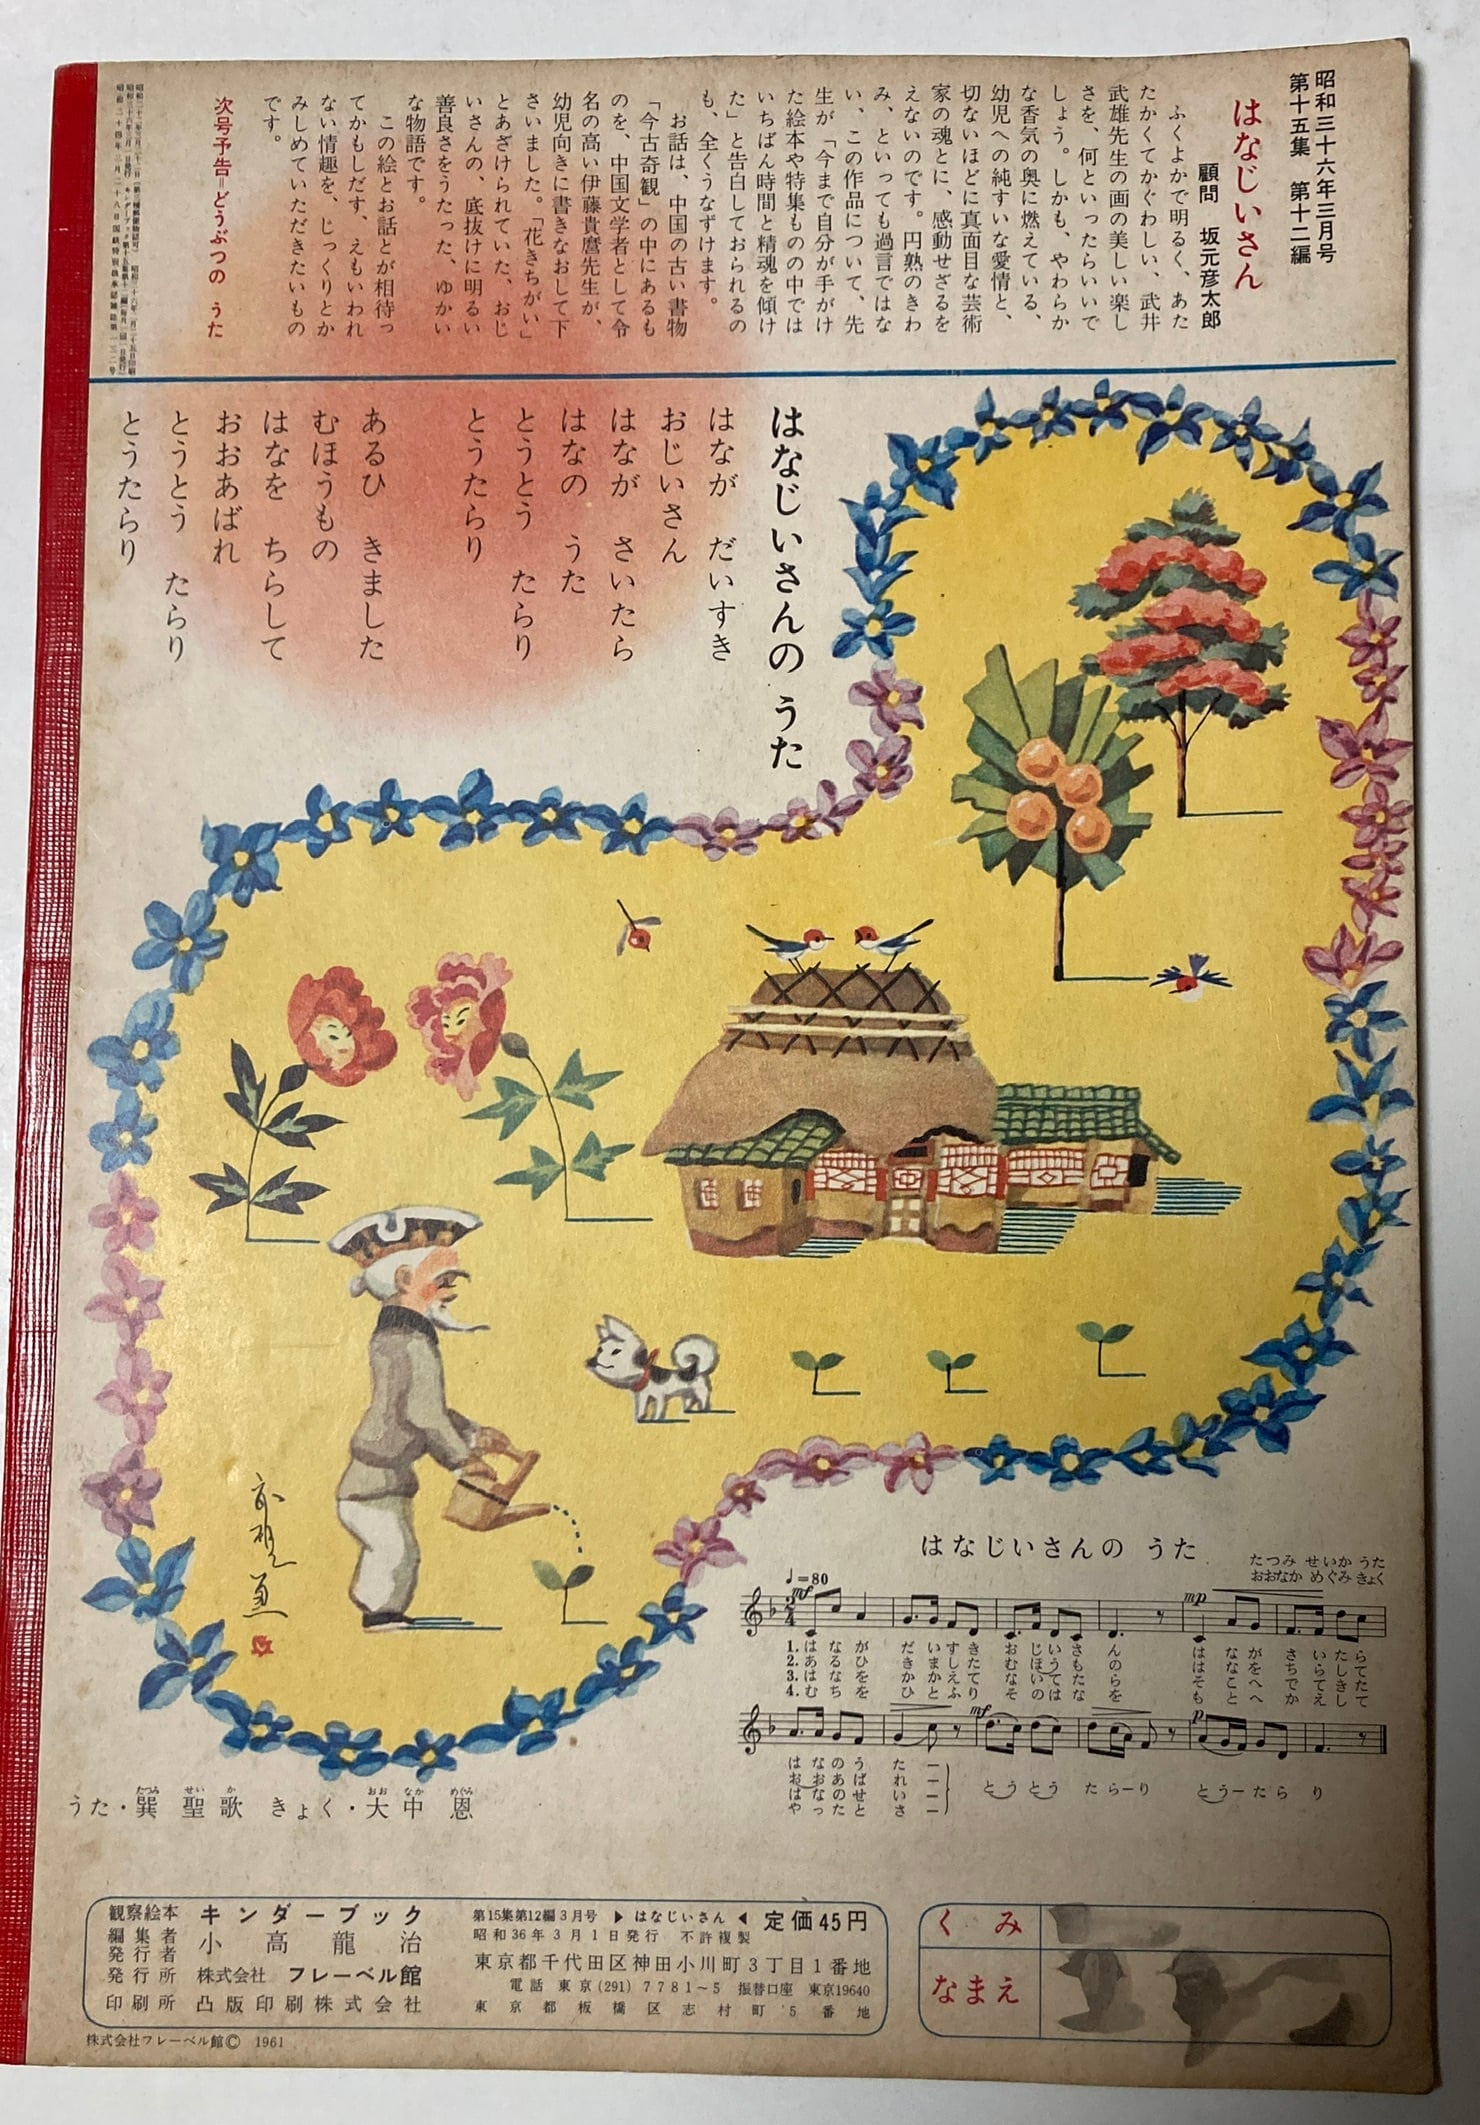 昭和三十六年三月号
第十五集　第十二編
はなじいさん
顧問　坂元彦太郎
ふくよかで明るく、あた
たかくてかぐわしい、武井
武雄先生の画の美しい楽し
さを、何といったらいいで
しょう。しかも、やわらか
な香気の奥に燃えている、
幼児への純すいな愛情と、
切ないほどに真面目な芸術
家の魂とに、感動せざるを
えないのです。円熟のきわ
み、といっても過言ではな
い、この作品について、先
生が、「今まで自分が手がけ
た絵本や特集ものの中では
いちばん時間と精魂を傾け
た」と告白しておられるの
も、全くうなずけます。
お話は、中国の古い書物
「今古奇観」の中にあるも
のを、中国文学者として令
名の高い伊藤貴麿先生が、
幼児向きに書きなおして下
さいました。「花きちがい」
とあざけられていた、おじ
いさんの、底抜けに明るい
善良さをうたった、ゆかい
な物語です。
この絵とお話とが相待っ
てかもしだす、えもいわれ
ない情趣を、じっくりとか
みしめていただきたいもの
です。
次号予告＝どうぶつの　うた
はなじいさんの　うた
はなが　だいすき
おじいさん
はなが　さいたら
はなの　うた
とうとう　たらり
とうたらり
あるひ　きました
むほうもの
はなを　ちらして
おおあばれ
とうとう　たらり
とうたらり
はなじいさんの うた
たつみ せいか うた
おおなか めぐみ きょく
♩=80
mf
mp
1. はなが だいすき おじいさん はなが さいたら
2. あるひ きました むほうもの はなを ちらして
mf
p
はなの うた
おおあばれ
とうとう たらーり とうーたらり
うた・巽 聖歌 きょく・大中 恩
たつみ せい か おお なか めぐみ
観察絵本 キンダーブック
編集者
発行者 小高龍治
発行所 株式会社 フレーベル館
印刷所 凸版印刷株式会社
第15集第12編3月号 ▶ はなじいさん ◀ 定価45円
昭和36年3月1日発行 不許複製
東京都千代田区神田小川町3丁目1番地
電話 東京(291)7781〜5 振替口座 東京19640
東京都板橋区志村町5番地
くみ
なまえ
株式会社フレーベル館© 1961